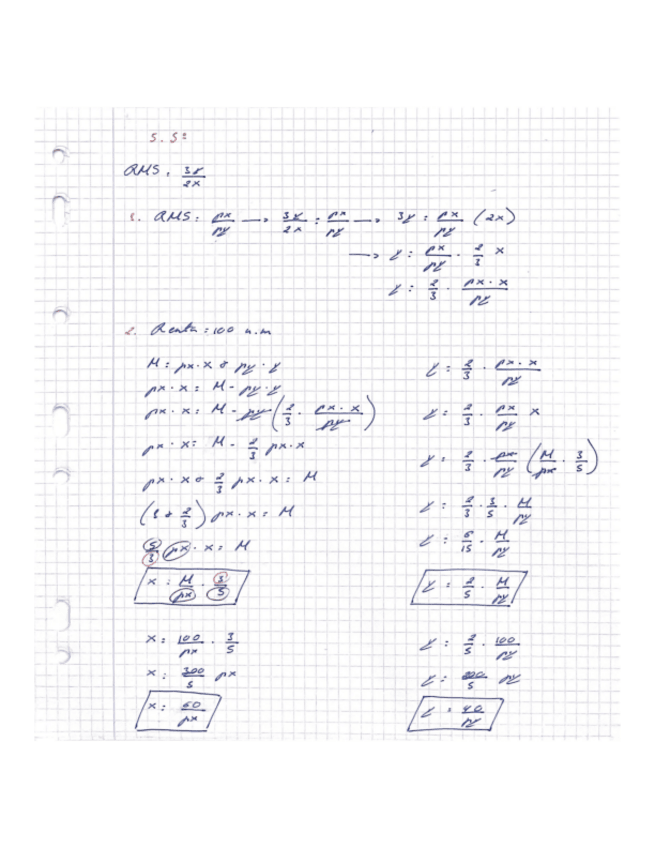 5.5:
RMS: 3y/2x
1. RMS: px/py → 3y/2x = px/py → 3y = px/py (2x)
→ y = px/py · 2/3 x
y = 2/3 · px·x/py
2. Renta = 100 u.m
M = px·x + py·y
px·x = M - py·y
px·x = M - py (2/3 · px·x/py)
px·x = M - 2/3 px·x
px·x + 2/3 px·x = M
(1 + 2/3) px·x = M
5/3 px·x = M
x = M/px · 3/5
x = 100/px · 3/5
x = 300/5 px
x = 60/px
y = 2/3 · px·x/py
y = 2/3 · px/py x
y = 2/3 · px/py (M/px · 3/5)
y = 2/3 · 3/5 · M/py
y = 6/15 · M/py
y = 2/5 · M/py
y = 2/5 · 100/py
y = 200/5 py
y = 40/py